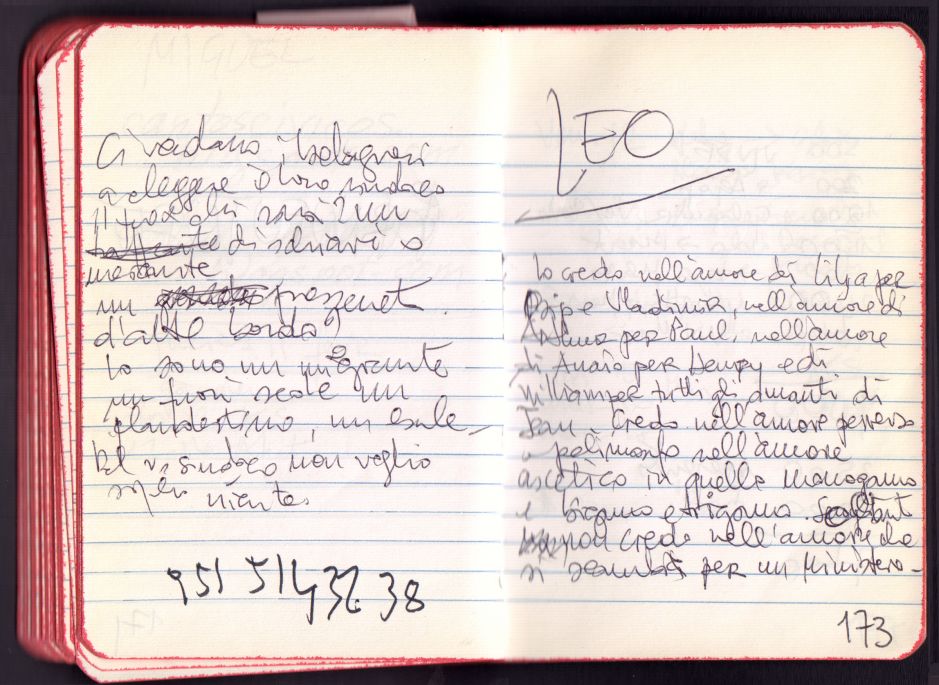 Ci vadano i bolognesi
a eleggere il loro sindaco
Il prode chi sarà? un
di schiavi o
mercante
un
d'alto bordo?
Io sono un migrante
un fuori sede un
clandestino, un esule
Del vs sindaco non voglio
saper niente.
951 51432 38
LEO
Io credo nell'amore di Lilja per
Osip e Vladimir, nell'amore di
Arthur per Paul, nell'amore
di Anaïs per Henry e di
William per tutti gli amanti di
Jean. Credo nell'amore perverso
e polimorfo nell'amore
ascetico in quello monogamo
e bigamo e trigamo. Soltanto
non credo nell'amore che
si scambia per un Ministero.
173